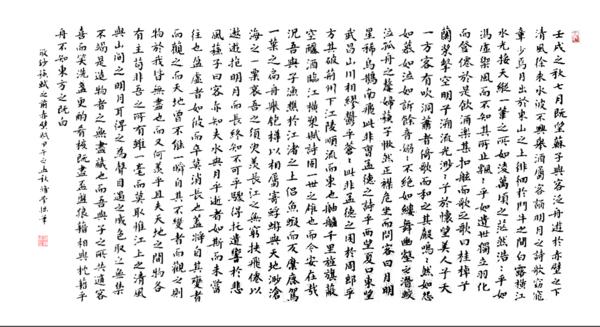 壬戌之秋七月既望蘇子與客泛舟遊於赤壁之下
清風徐來水波不興舉酒屬客誦明月之詩歌窈窕
章少焉月出於東山之上徘徊於鬥牛之間白露橫江
水光接天縱一葦之所如淩萬頃之茫然浩〻乎如
馮虛禦風而不知其所止飄〻乎如遺世獨立羽化
而登僊於是飲酒樂甚扣舷而歌之歌曰桂棹兮
蘭槳擊空明兮溯流光渺〻兮於懷望美人兮天
一方客有吹洞簫者倚歌而和之其聲嗚〻然如怨
如慕如泣如訴餘音嫋〻不絕如縷舞幽壑之潛蛟
泣孤舟之嫠婦蘇子愀然正襟危坐而問客曰月明
星稀烏鵲南飛此非曹孟德之詩乎西望夏口東望
武昌山川相繆鬱乎蒼〻此非孟德之困於周郎乎
方其破荊州下江陵順流而東也舳艫千里旌旗蔽
空釃酒臨江橫槊賦詩固一世之雄也而今安在哉
況吾與子漁樵於江渚之上侶魚蝦而友麋鹿駕
一葉之扁舟舉匏樽以相屬寄蜉蝣與天地渺滄
海之一粟哀吾生之須臾羨長江之無窮挾飛僊以
遨遊抱明月而長終知不可乎驟得托遺響於悲
風蘇子曰客亦知夫水與月乎逝者如斯而未嘗
往也盈虛者如彼而卒莫消長也蓋將自其變者
而觀之而天地曾不能一瞬自其不變者而觀之則
物於我皆無盡也而又何羨乎且夫天地之間物各
有主苟非吾之所有雖一毫而莫取惟江上之清風
與山間之明月耳得之為聲目遇之成色取之無禁
不竭是造物者之無盡藏也而吾與子之所共適客
喜而笑洗盞更酌肴核既盡杯盤狼籍相與枕藉乎
舟不知東方之既白